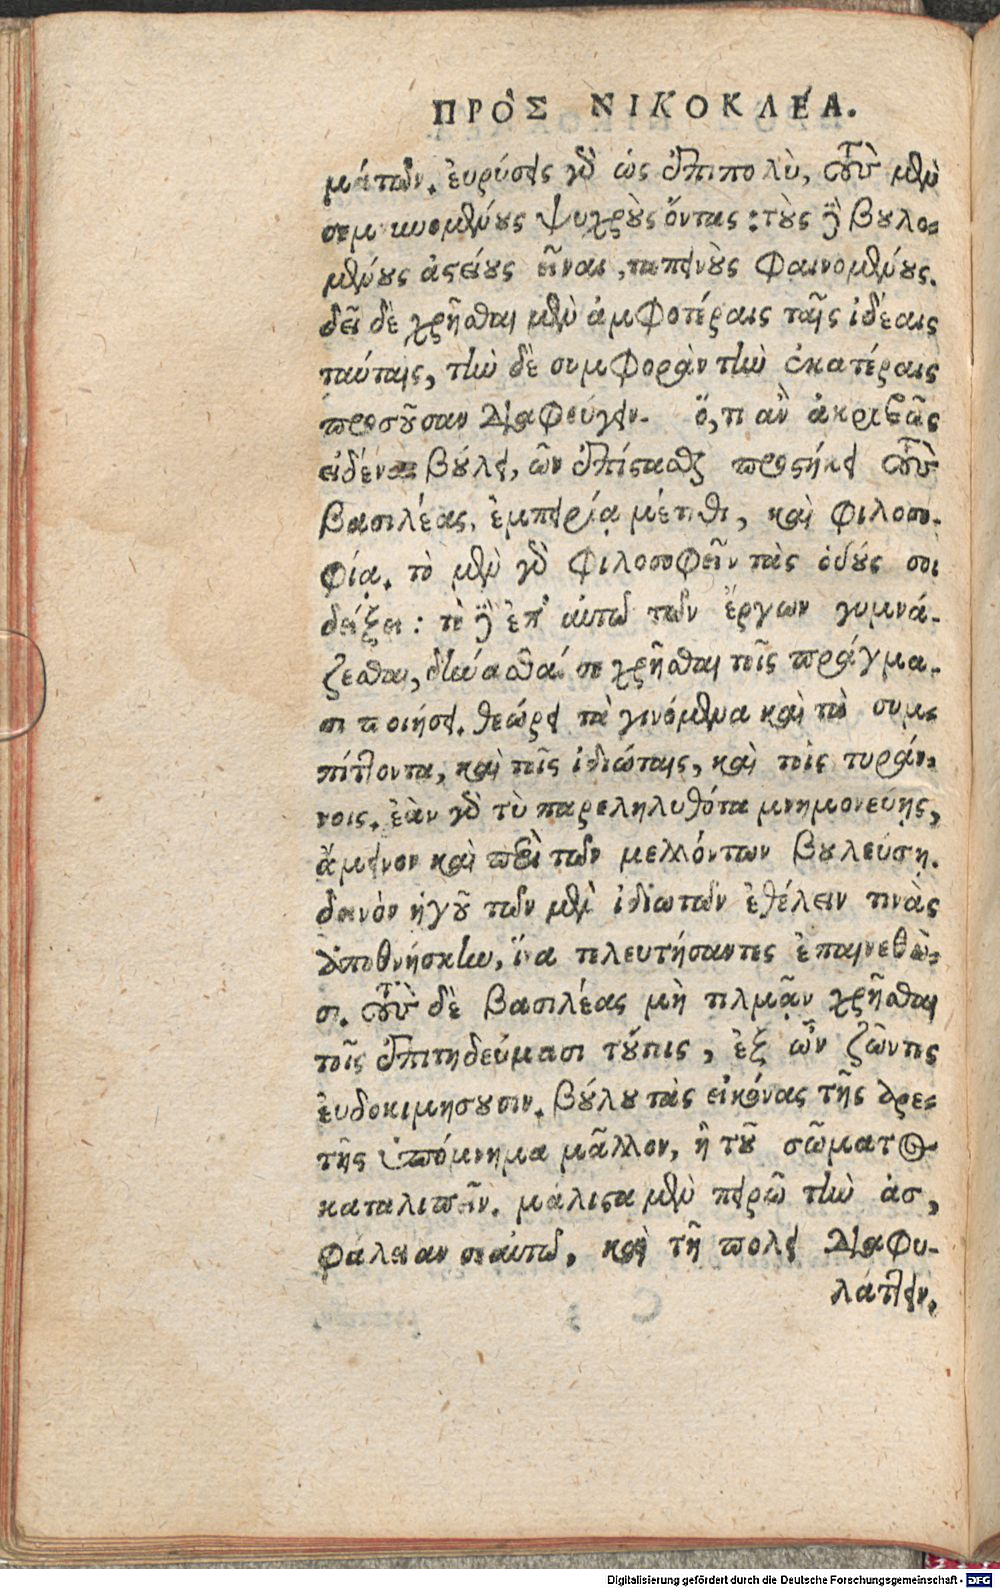 ΠΡῸΣ ΝΙΚΟΚΛΈΑ.
μάτων. ἑυρήσεις γὰρ ὡς ἐπιπολὺ, τοὺς μὲν
σεμνυνομένους ψυχροὺς ὄντας: τοὺς δὲ βουλο-
μένους ἀστείους εἶναι, ταπεινοὺς φαινομένους.
δεῖ δὲ χρῆσθαι μὲν ἀμφοτέραις ταῖς ἰδέαις
ταύταις, τὴν δὲ συμφορὰν τὴν ἑκατέραις
προσοῦσαν διαφεύγειν. ὅ, τι ἂν ἀκριβῶσαι
βούλει, ὧν ἐπίστασθαι προσήκει τοὺς
βασιλέας, ἐμπειρίᾳ μέτιθι, καὶ φιλοσο-
φίᾳ. τὸ μὲν γὰρ φιλοσοφεῖν τὰς ὁδούς σοι
δείξει: τὸ δὲ ἐπ' αὐτῶν τῶν ἔργων γυμνά-
ζεσθαι, δύνασθαί σε χρῆσθαι τοῖς πράγμα-
σι ποιήσει. θεώρει τὰ γινόμενα καὶ τὰ συμ-
πίπτοντα, καὶ τοῖς ἰδιώταις, καὶ τοῖς τυράν-
νοις. ἐὰν γὰρ τὰ παρεληλυθότα μνημονεύῃς,
ἄμεινον καὶ περὶ τῶν μελλόντων βουλεύσῃ.
δεινὸν ἡγοῦ τῶν μὲν ἰδιωτῶν ἐθέλειν τινὰς
ἀποθνήσκειν, ἵνα τελευτήσαντες ἐπαινεθῶ-
σι. τοὺς δὲ βασιλέας μὴ τολμᾷν χρῆσθαι
τοῖς ἐπιτηδεύμασι τούτοις, ἐξ ὧν ζῶντες
ἐυδοκιμήσουσιν. βούλου τὰς εἰκόνας τῆς ἀρε-
τῆς ὑπόμνημα μᾶλλον, ἢ τοῦ σώματος
καταλιπεῖν. μάλιστα μὲν πειρῶ τὴν ἀσ,
φάλειαν σεαυτῷ, καὶ τῇ πόλει διαφυ-
λάττειν,
Digitalisierung gefördert durch die Deutsche Forschungsgemeinschaft - DFG